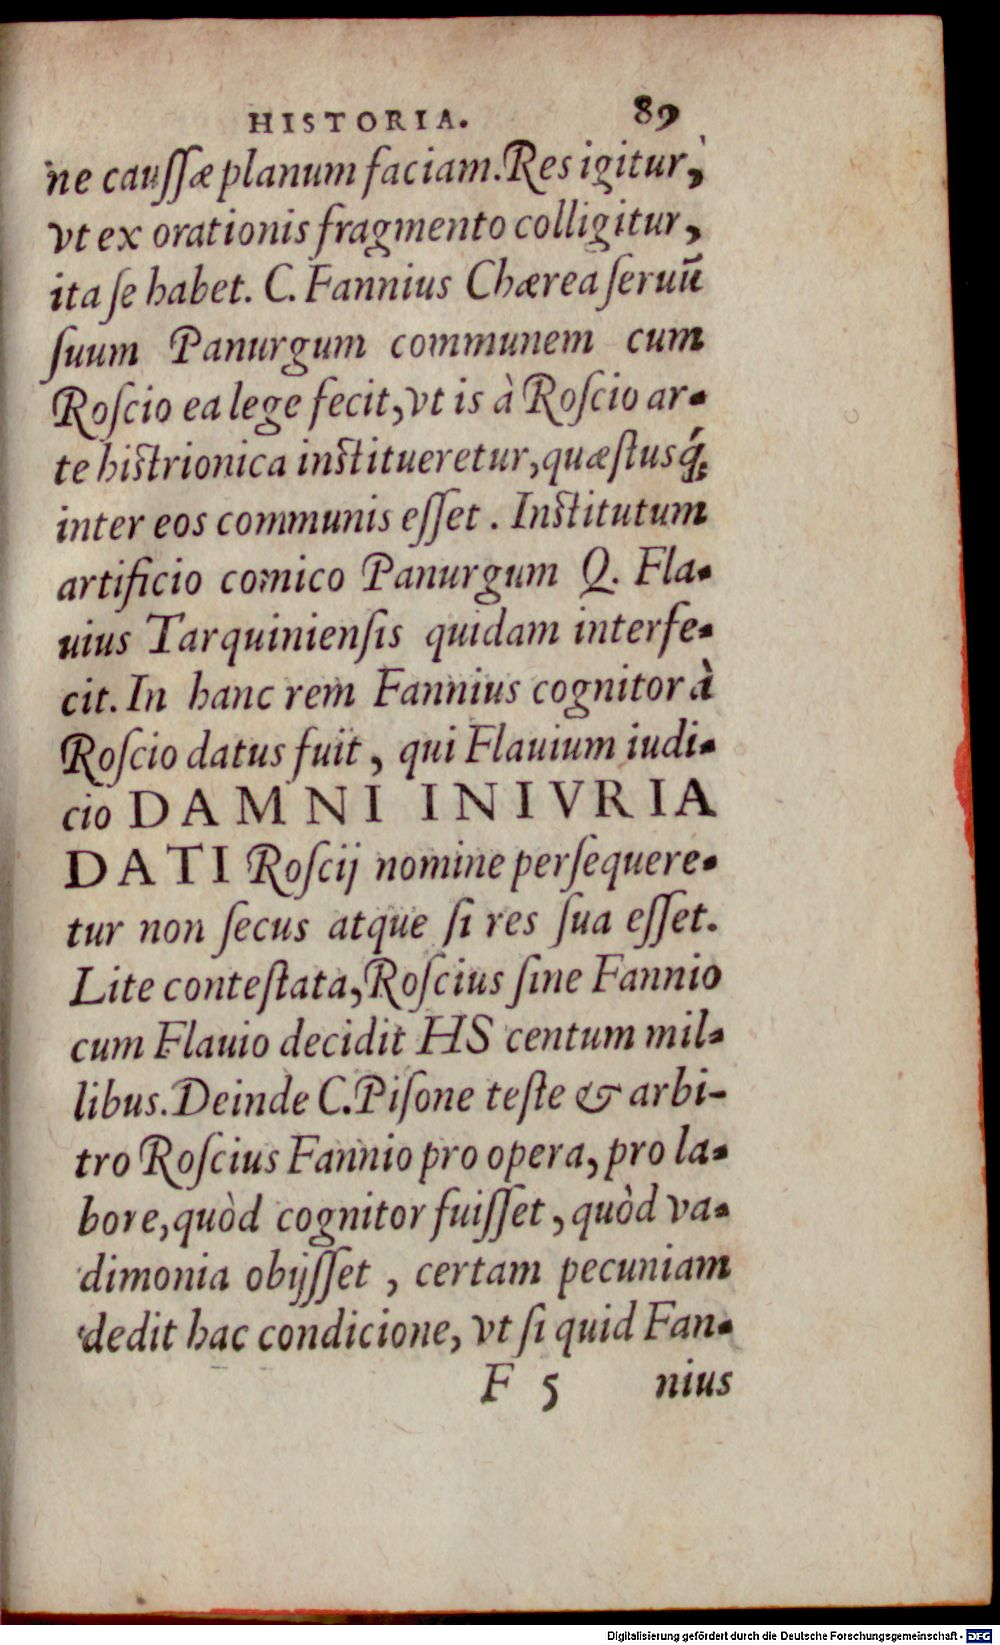 HISTORIA. 89
ne caussæ planum faciam. Res igitur,
vt ex orationis fragmento colligitur,
ita se habet. C. Fannius Chærea seruū
suum Panurgum communem cum
Roscio ea lege fecit, vt is à Roscio ar-
te histrionica institueretur, quæstusq́;
inter eos communis esset. Institutum
artificio comico Panurgum Q. Fla-
uius Tarquiniensis quidam interfe-
cit. In hanc rem Fannius cognitor à
Roscio datus fuit, qui Flauium iudi-
cio DAMNI INIVRIA
DATI Roscij nomine persequere-
tur non secus atque si res sua esset.
Lite contestata, Roscius sine Fannio
cum Flauio decidit HS centum mil-
libus. Deinde C. Pisone teste & arbi-
tro Roscius Fannio pro opera, pro la-
bore, quòd cognitor fuisset, quòd va-
dimonia obijsset, certam pecuniam
dedit hac condicione, vt si quid Fan-
F 5 nius
Digitalisierung gefördert durch die Deutsche Forschungsgemeinschaft - DFG